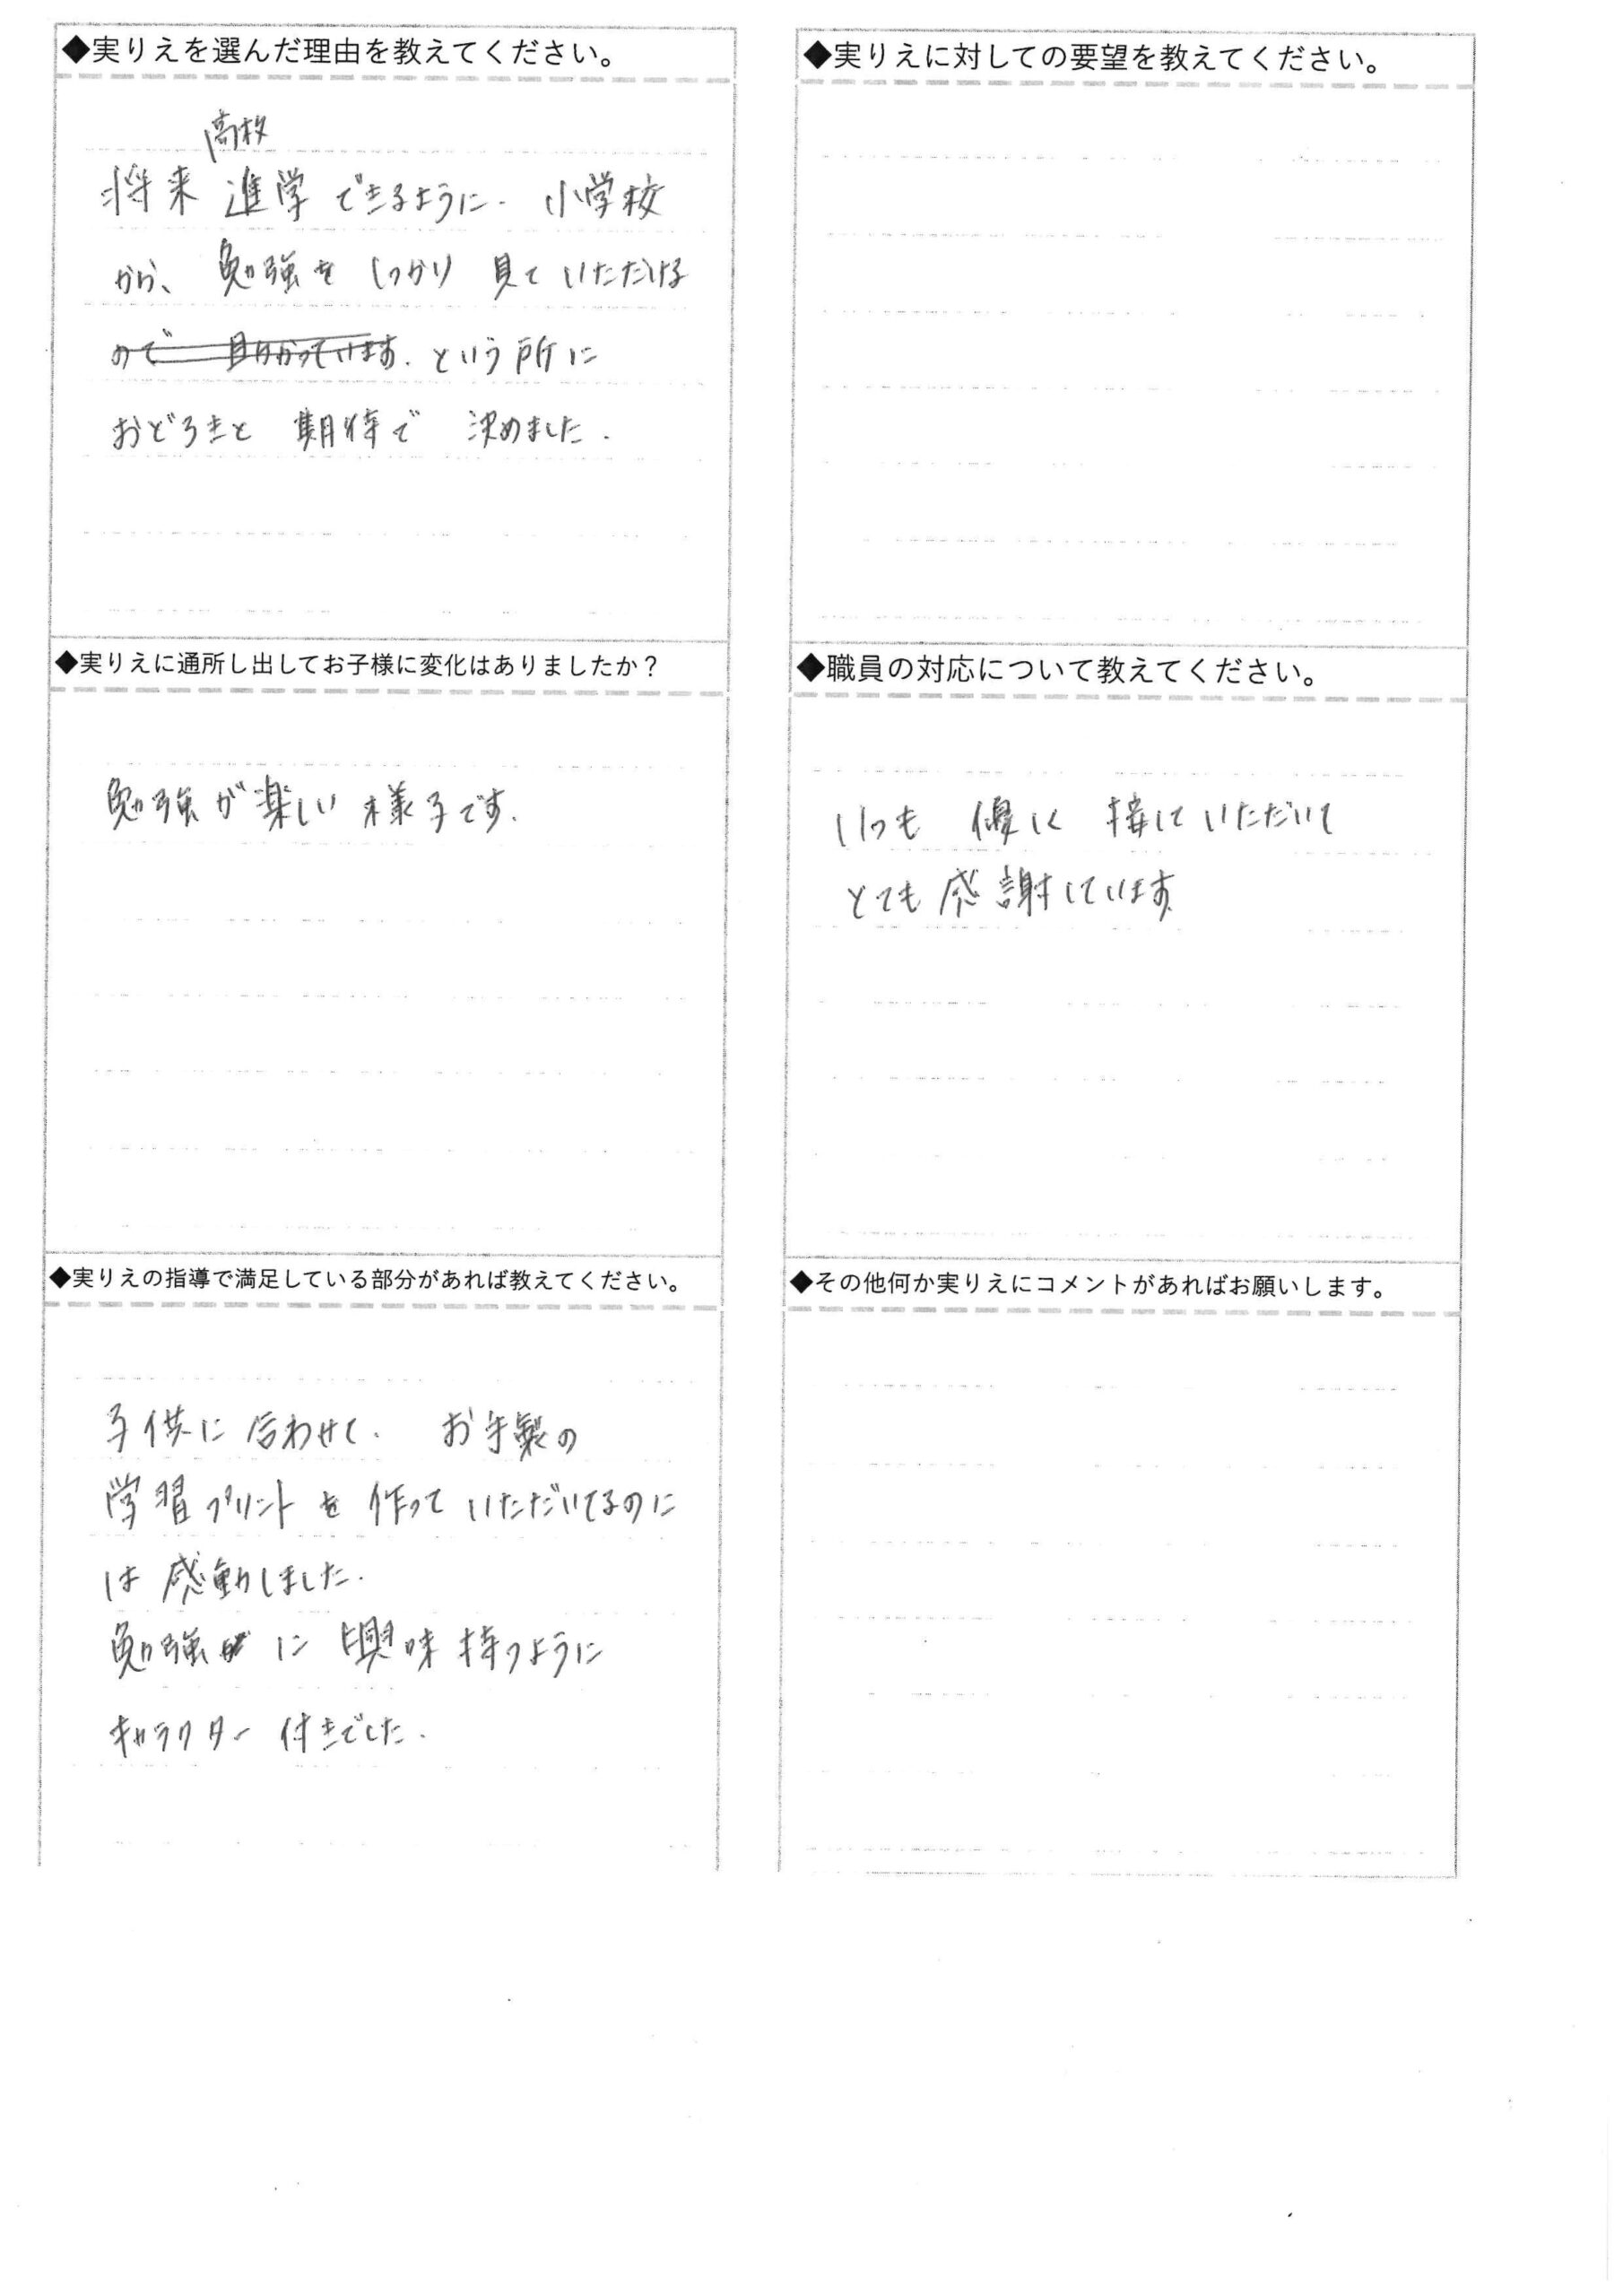 ◆実りえを選んだ理由を教えてください。
高校
将来 進学できるように. 小学校
から、勉強を しっかり 見て いただける
ので 助かっています. という所に
おどろきと 期待で 決めました.
◆実りえに通所し出してお子様に変化はありましたか？
勉強が楽しい 様子です.
◆実りえの指導で満足している部分があれば教えてください。
子供に 合わせて. お手製の
学習プリントを 作って いただいてるのに
は 感動しました.
勉強 に 興味 持つように
キャラクター 付きでした.
◆実りえに対しての要望を教えてください。
◆職員の対応について教えてください。
いつも 優しく 接して いただいて
とても 感謝しています
◆その他何か実りえにコメントがあればお願いします。